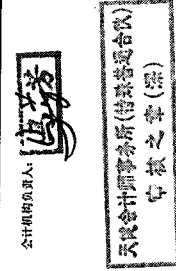 会计机构负责人：
天健会计师事务所(特殊普通合伙)
审核之章(深)